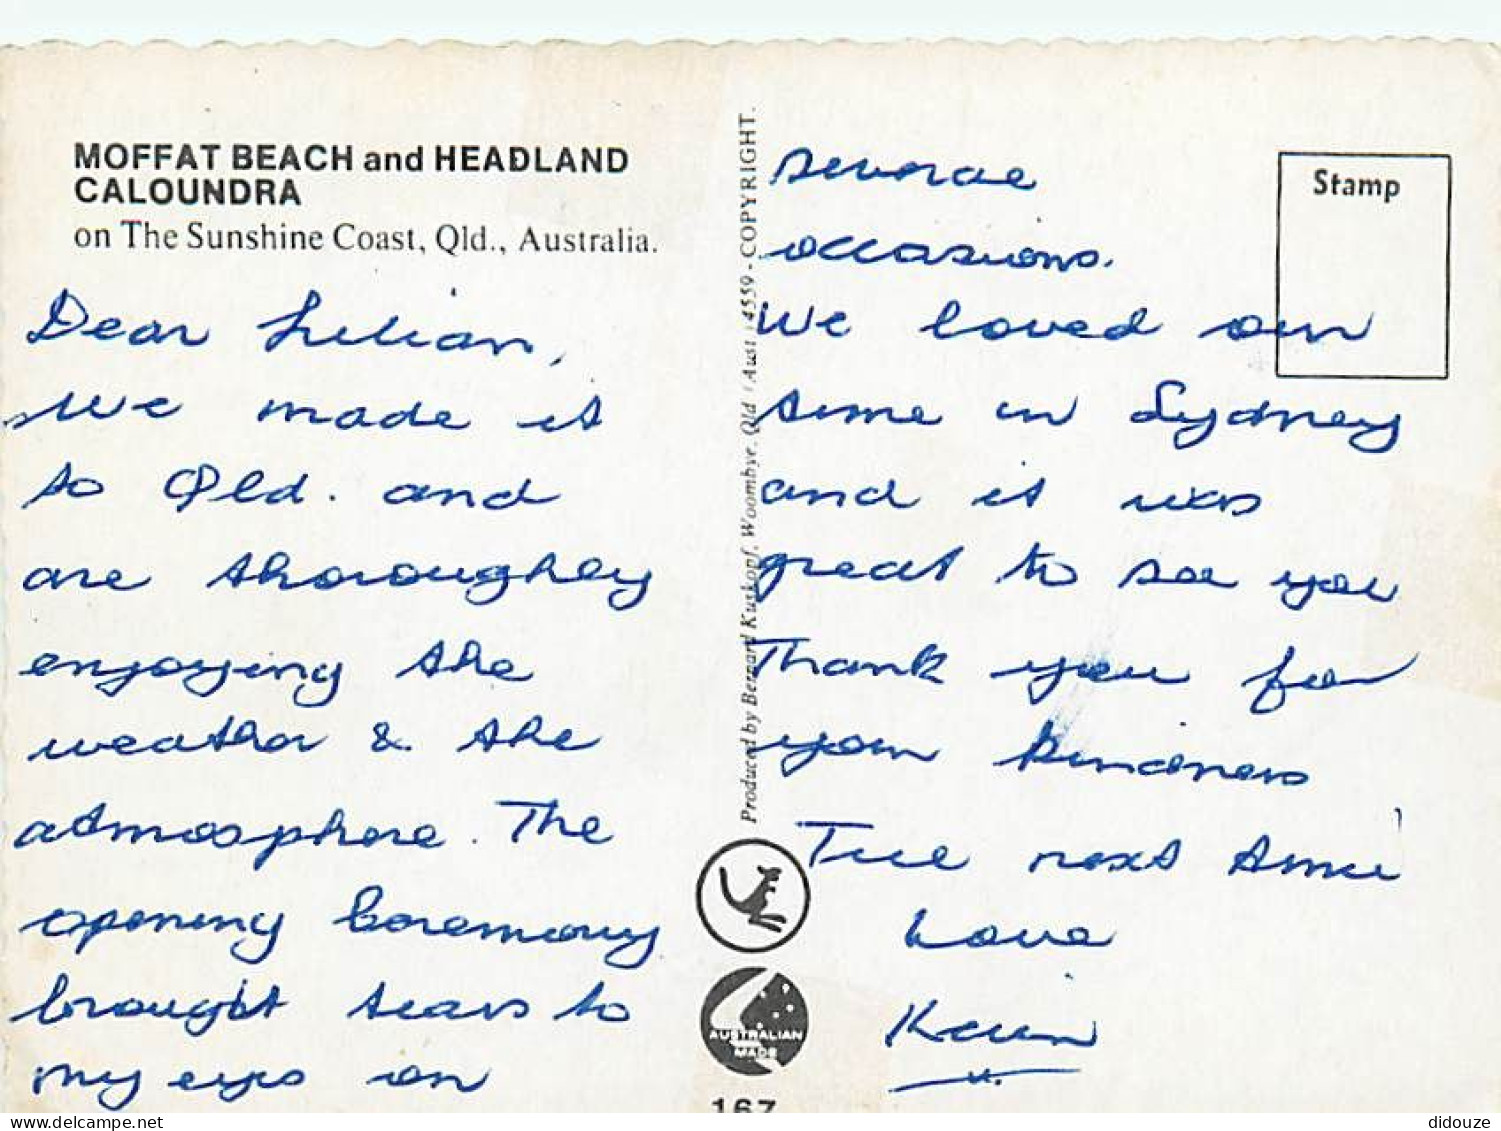 MOFFAT BEACH and HEADLAND
CALOUNDRA
on The Sunshine Coast, Qld., Australia.
Dear Lilian,
We made it
to Qld. and
are thoroughly
enjoying the
weather & the
atmosphere. The
opening ceremony
brought tears to
my eyes on
Produced by Bernard Kuskopf, Woombye, Qld (Aust.) 4559 - COPYRIGHT.
AUSTRALIAN
MADE
167
several
occasions.
We loved our
time in Sydney
and it was
great to see you
Thank you for
your kindness
Till next time
Love
Kevin
Stamp
didouze